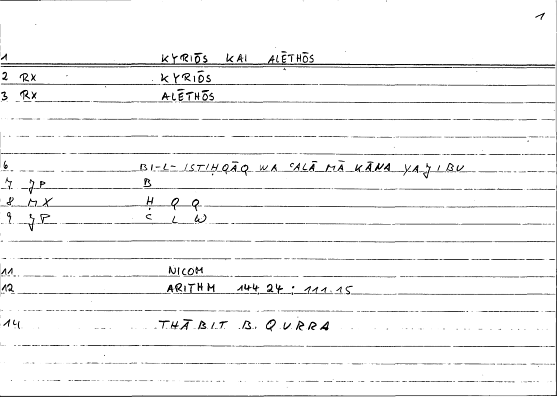 1
1 KYRIŌS KAI ALĒTHŌS
2 RX KYRIŌS
3 RX ALĒTHŌS
6 BI-L-ISTIḤQĀQ WA ʿALĀ MĀ KĀNA YAJIBU
7 JP B
8 MX Ḥ Q Q
9 JP ʿ L W
11 NICOM
12 ARITHM 144,24 : 111.15
14 THĀBIT B. QURRA